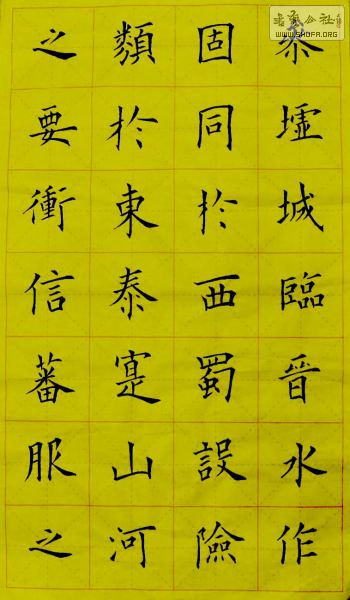 墟城臨晉水作
固同於西蜀設險
類於東泰寔山河
之要衝信蕃服之
公社
WWW.SHUFA.ORG